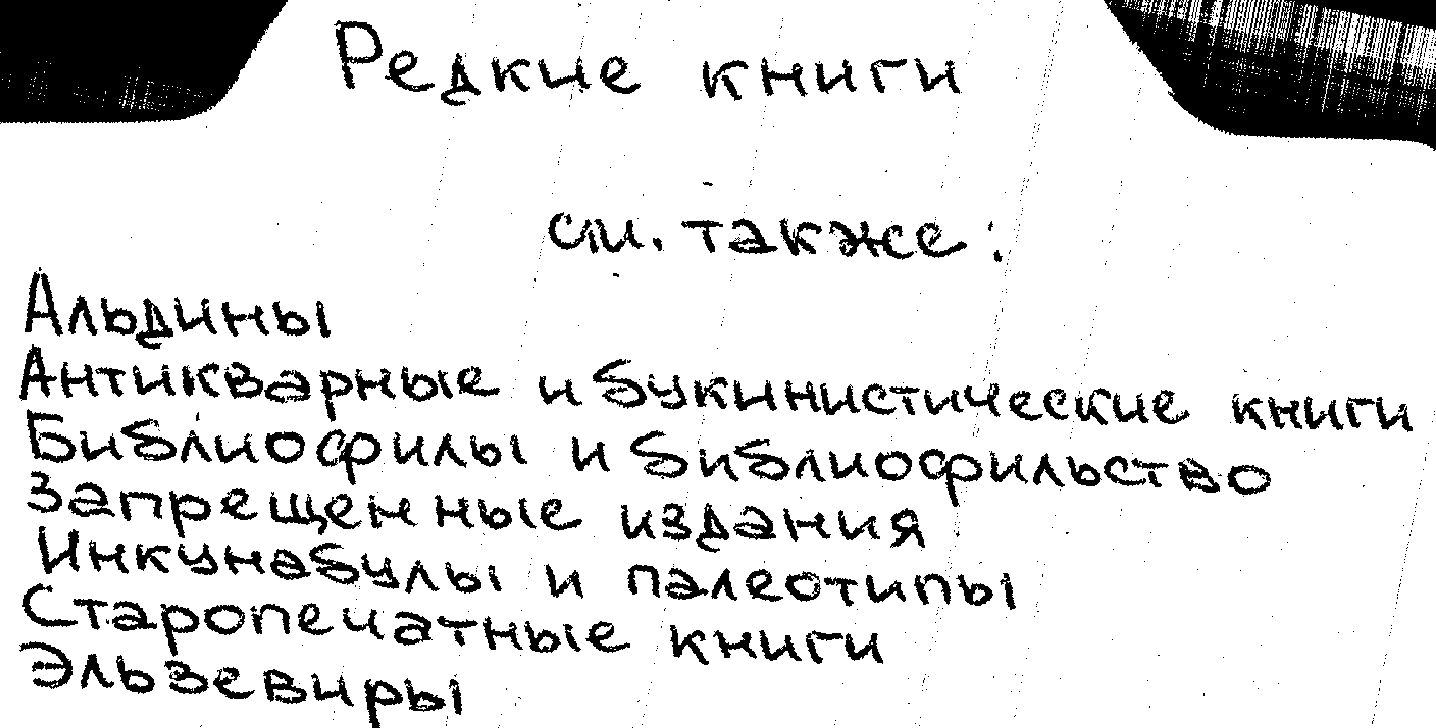 Редкие книги
см. также:
Альдины
Антикварные и букинистические книги
Библиофилы и библиофильство
Запрещенные издания
Инкунабулы и палеотипы
Старопечатные книги
Эльзевиры